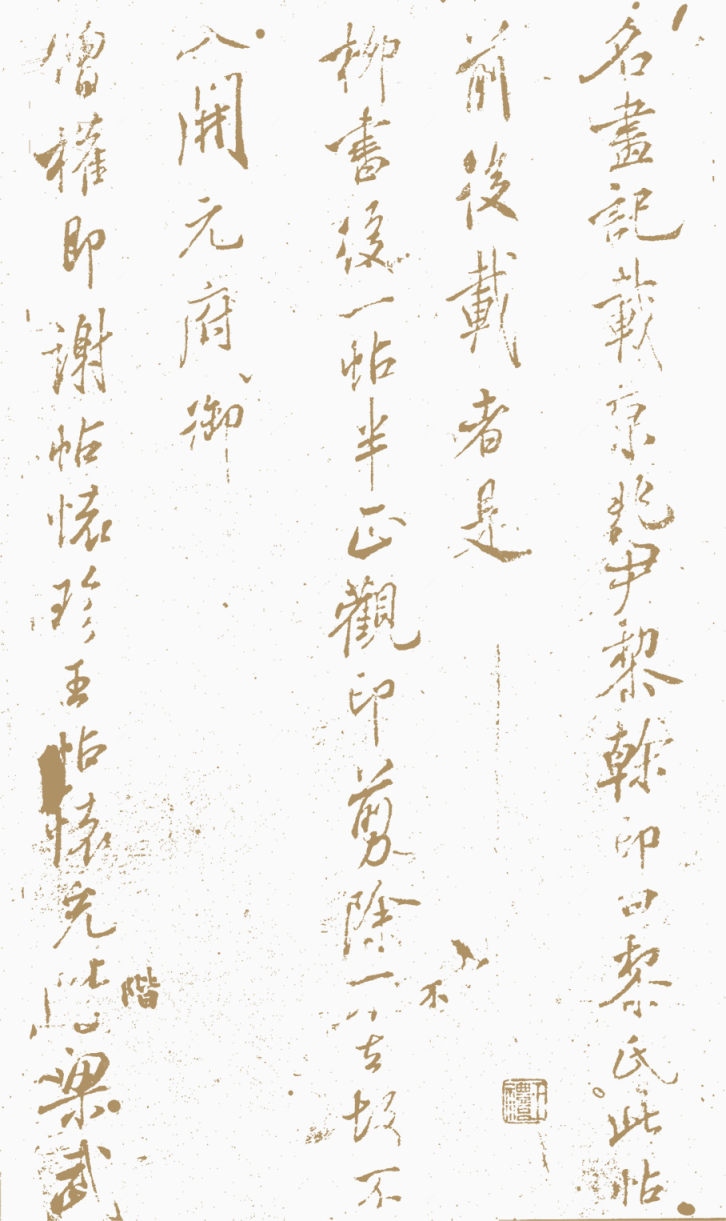 名畫記載京兆尹黎幹印曰黎氏此帖
前後載者是
柳書後一帖半正觀印剪除不去故不
不
入開元府御
階
僧權即謝帖懷珍王帖懷充階梁武